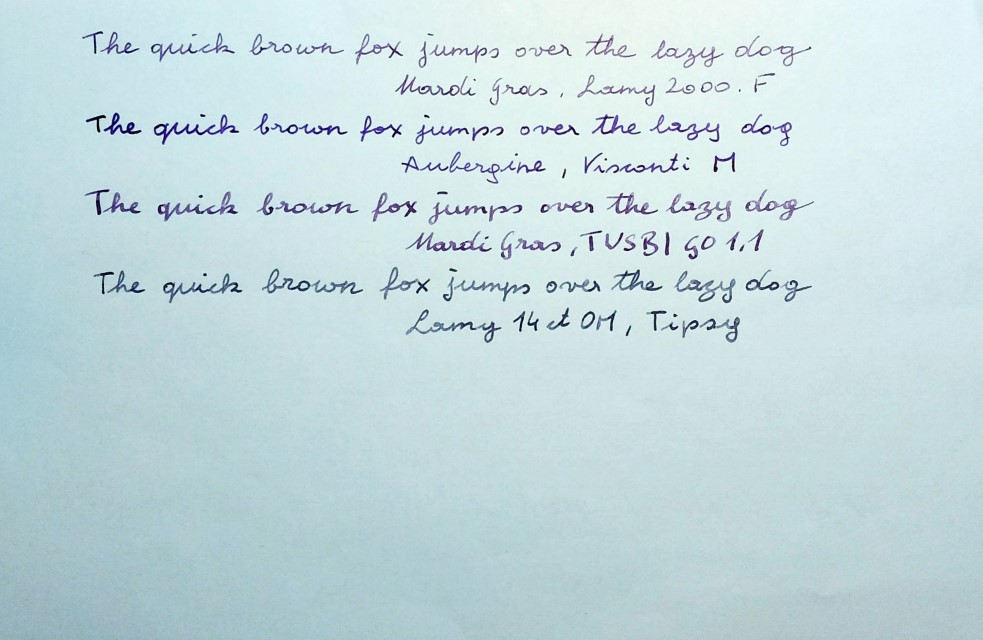 The quick brown fox jumps over the lazy dog
Mardi Gras, Lamy 2000. F
The quick brown fox jumps over the lazy dog
Aubergine, Visconti M
The quick brown fox jumps over the lazy dog
Mardi Gras, TVSBI GO 1,1
The quick brown fox jumps over the lazy dog
Lamy 14 ct OM, Tipsy